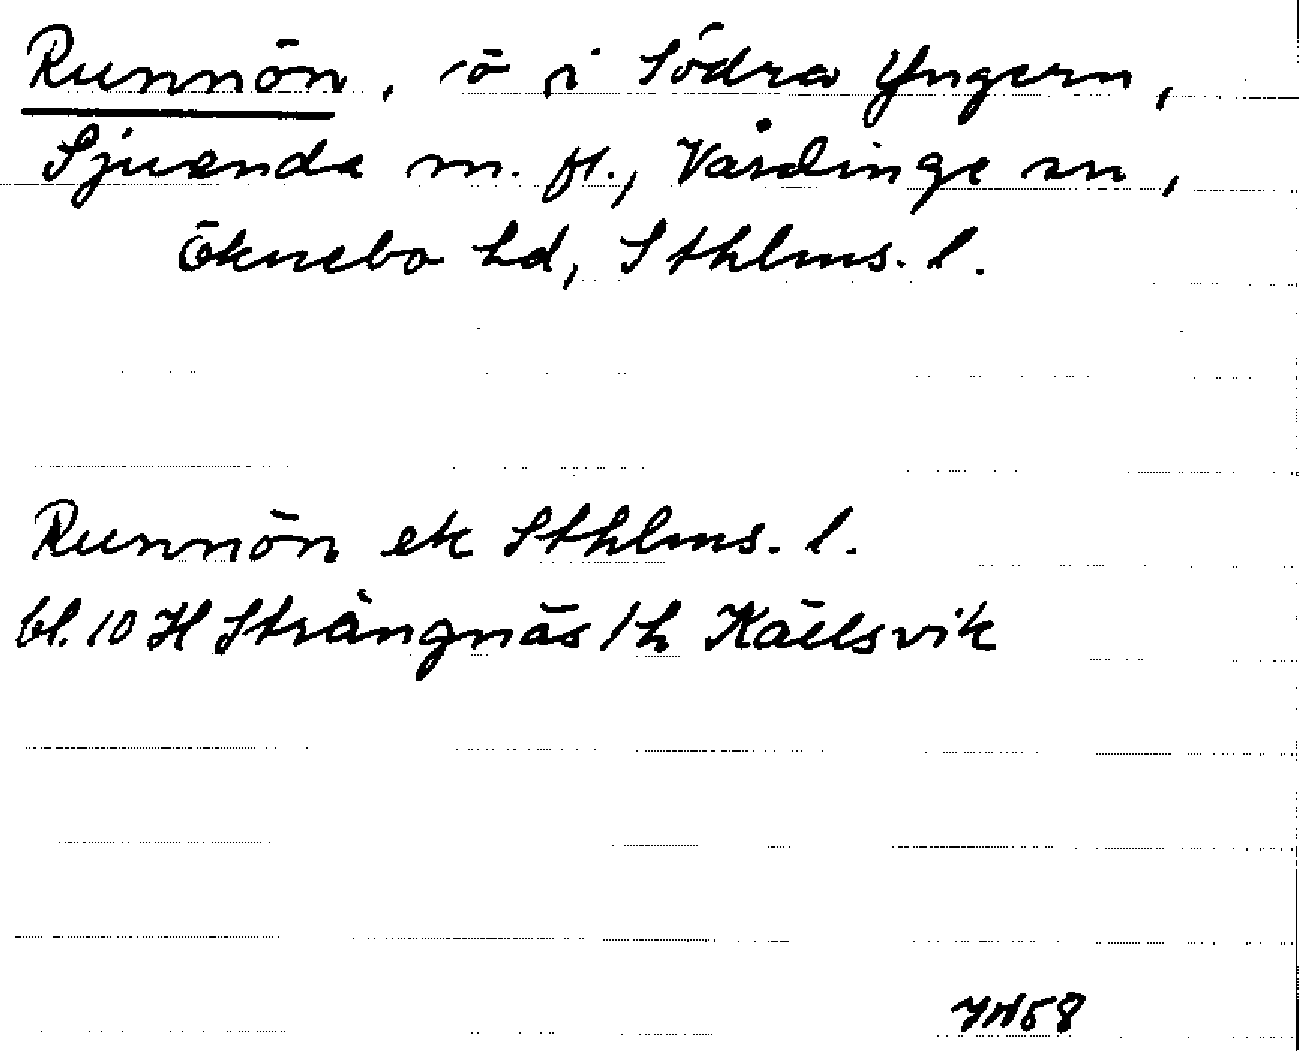 Runnön, ö i Södra Yngern,
Sjuenda m. fl., Vårdinge sn,
Öknebo hd, Sthlms. l.
Runnön ek Sthlms. l.
bl. 10 H Strängnäs / h Källsvik